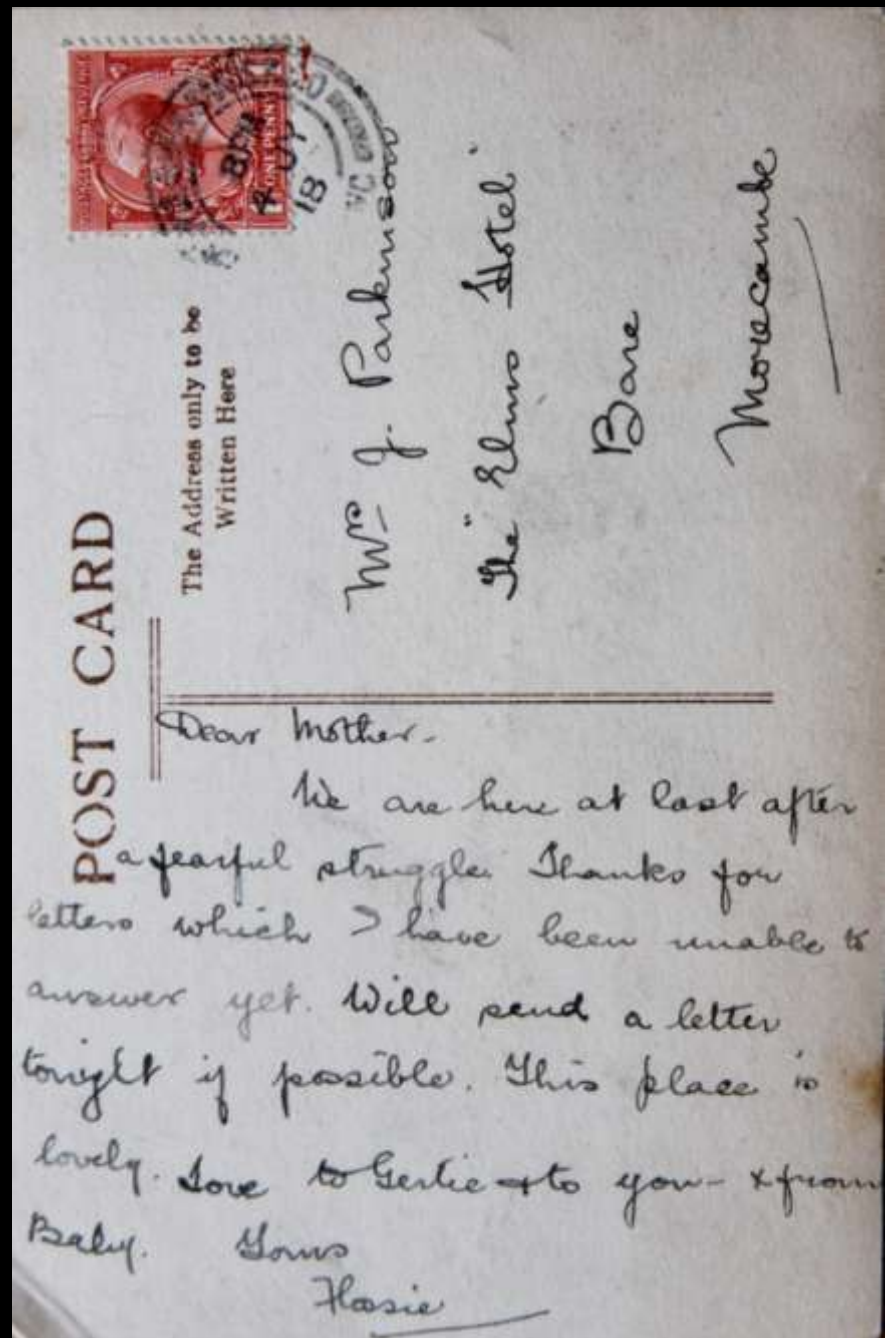 POST CARD
The Address only to be
Written Here
ONE PENNY
8 PM
4 JY
18
Mrs J. Parkinson
The "Elms Hotel"
Bare
Morecambe
Dear Mother.
We are here at last after
a fearful struggle. Thanks for
letters which I have been unable to
answer yet. Will send a letter
tonight if possible. This place is
lovely. Love to Gertie & to you - & from
Baby. Yours
Flossie